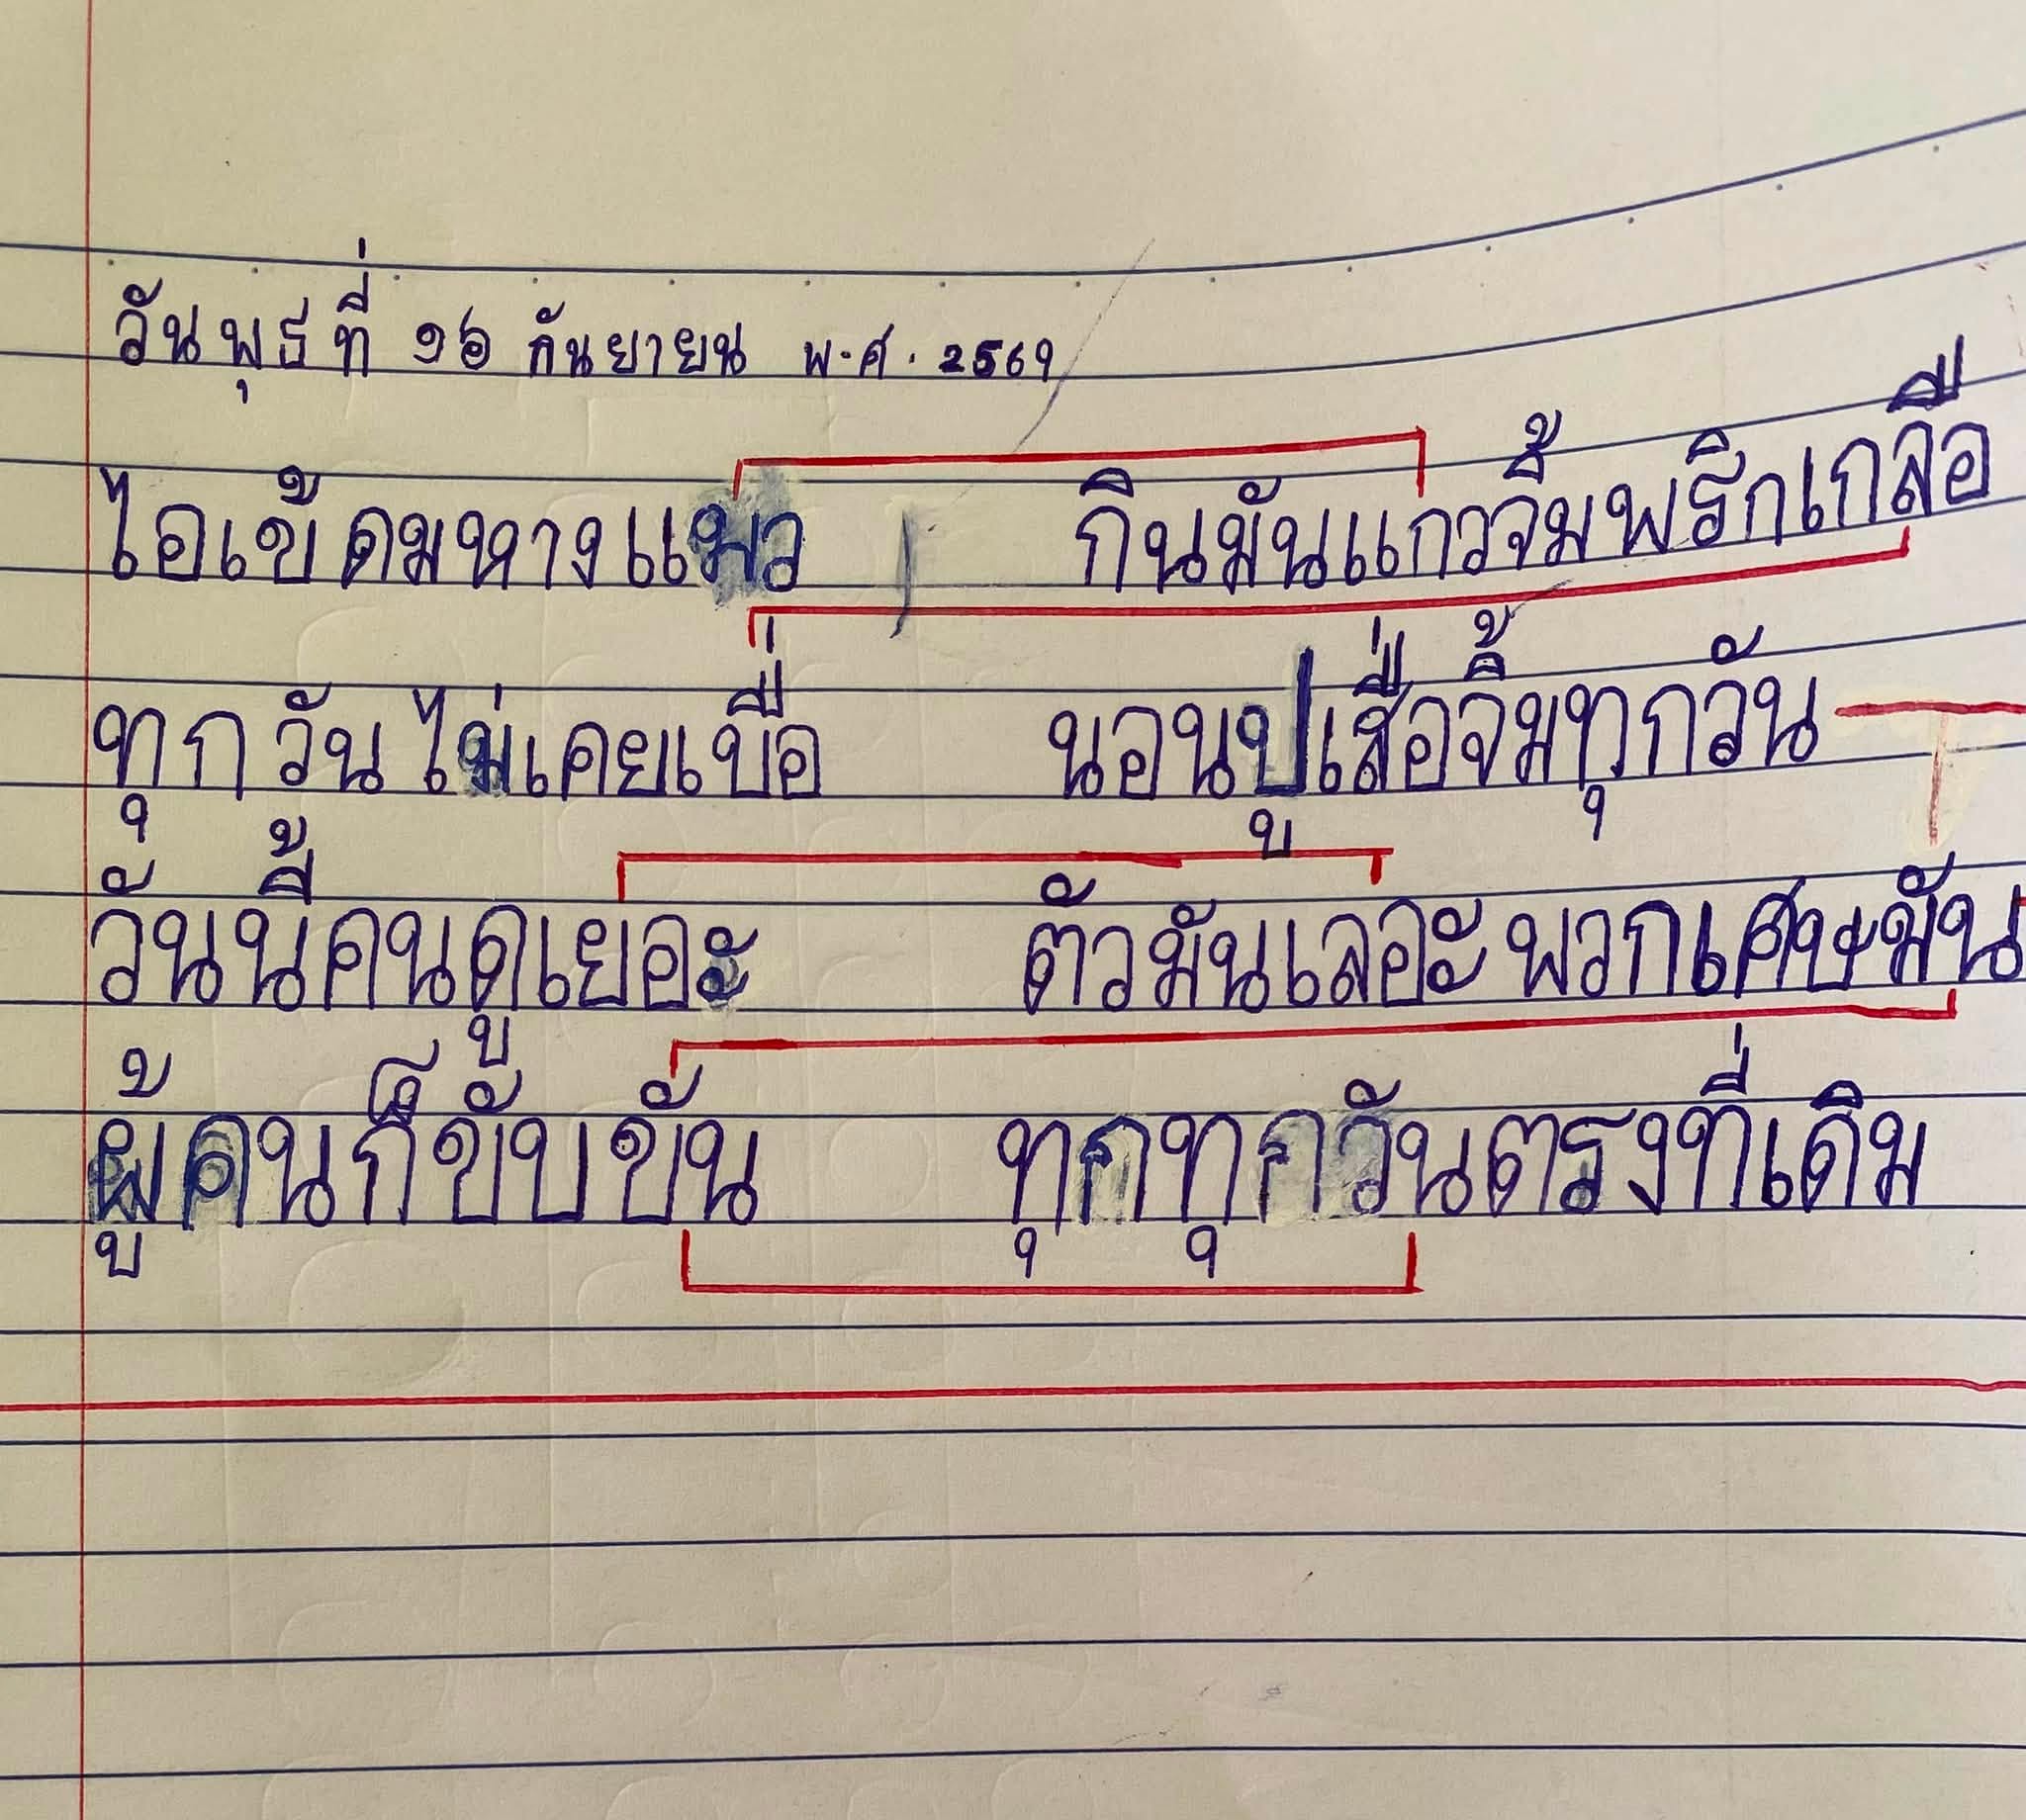 วันพุธที่ ๑๖ กันยายน พ.ศ. 2569
ไอเข้ดมหางแมว กินมันแกวจิ้มพริกเกลือ
ทุกวันไม่เคยเบื่อ นอนปูเสื่อจิ้มทุกวัน
วันนี้คนดูเยอะ ตัวมันเลอะพวกเศษมัน
ผู้คนก็ขับขัน ทุกทุกวันตรงที่เดิม